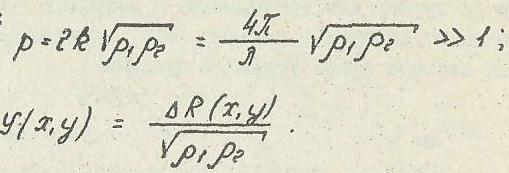 p = 2k √ρ₁ρ₂ = 4π/λ √ρ₁ρ₂ ≫ 1;
φ(x,y) = ΔR(x,y)/√ρ₁ρ₂.